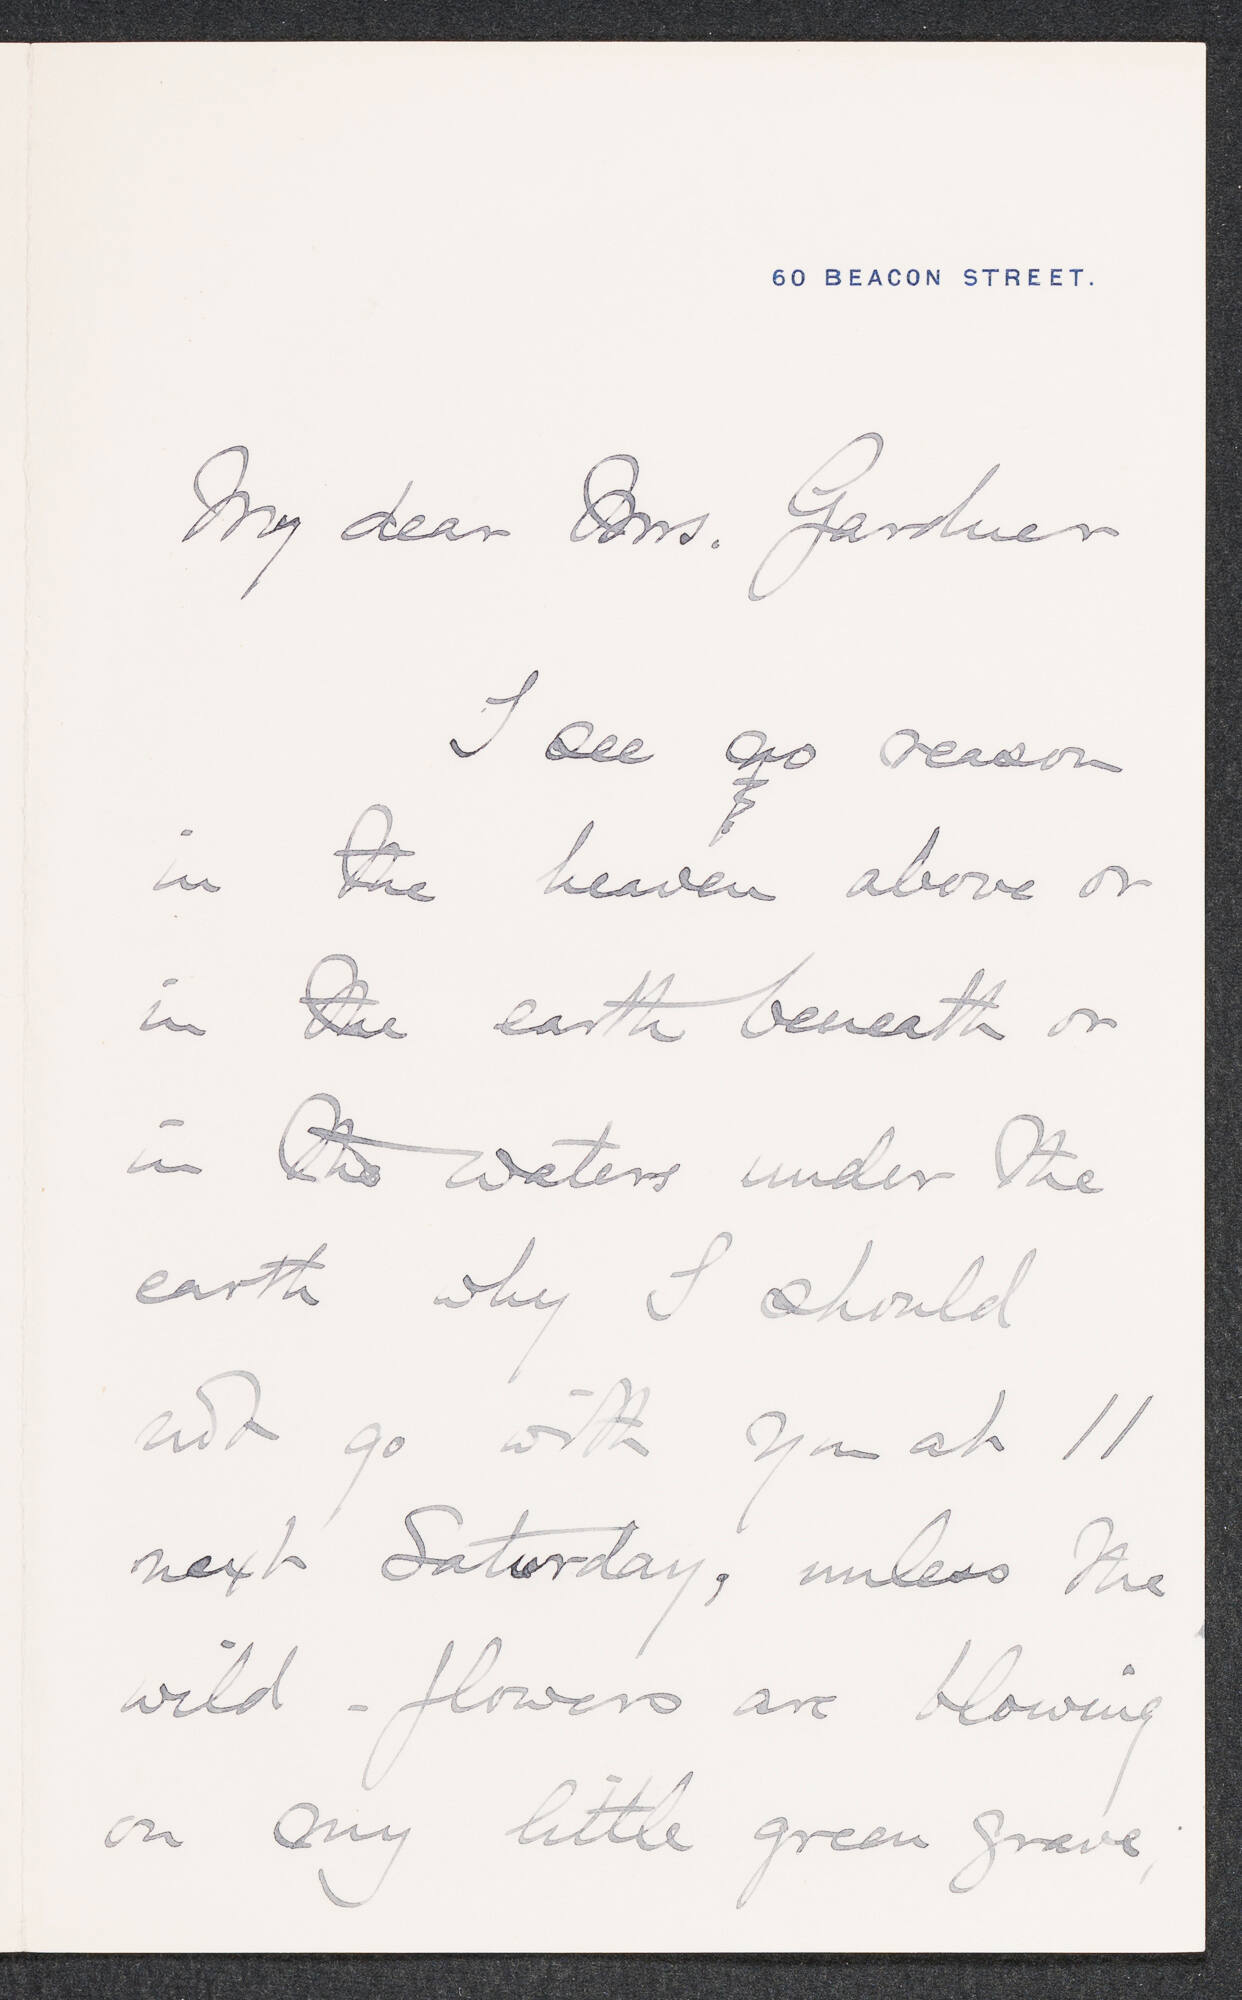 60 BEACON STREET.
My dear Mrs. Gardner
I see no reason
in the heaven above or
in the earth beneath or
in the waters under the
earth why I should
not go with you at 11
next Saturday, unless the
wild-flowers are blowing
on my little green grave,